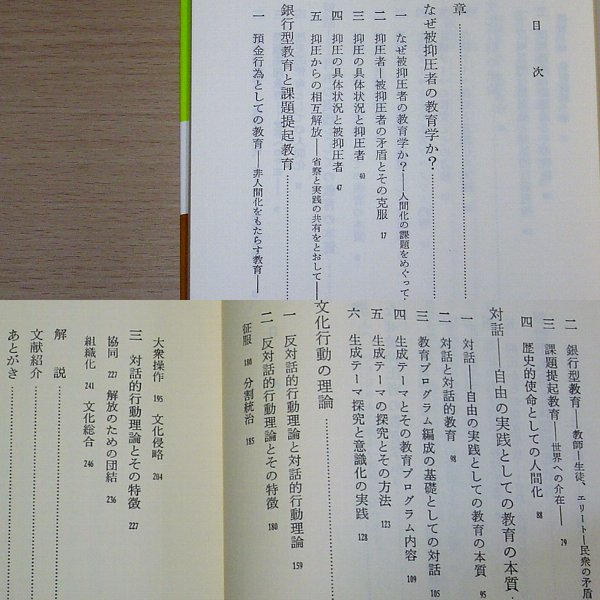 目次
章
なぜ被抑圧者の教育学か?
一 なぜ被抑圧者の教育学か?——人間化の課題をめぐって
二 抑圧者—被抑圧者の矛盾とその克服 17
三 抑圧の具体状況と抑圧者 40
四 抑圧の具体状況と被抑圧者 47
五 抑圧からの相互解放——省察と実践の共有をとおして——
銀行型教育と課題提起教育
一 預金行為としての教育——非人間化をもたらす教育——
二 銀行型教育——教師—生徒、エリート—民衆の矛盾
三 課題提起教育——世界への介在—— 79
四 歴史的使命としての人間化 88
対話——自由の実践としての教育の本質
一 対話——自由の実践としての教育の本質 95
二 対話と対話的教育 98
三 教育プログラム編成の基礎としての対話 105
四 生成テーマとその教育プログラム内容 109
五 生成テーマの探究とその方法 123
六 生成テーマ探究と意識化の実践 128
文化行動の理論
一 反対話的行動理論と対話的行動理論 159
二 反対話的行動理論とその特徴 180
征服 180 分割統治 185
大衆操作 195 文化侵略 204
三 対話的行動理論とその特徴 227
協同 227 解放のための団結 236
組織化 241 文化総合 246
解説
文献紹介
あとがき